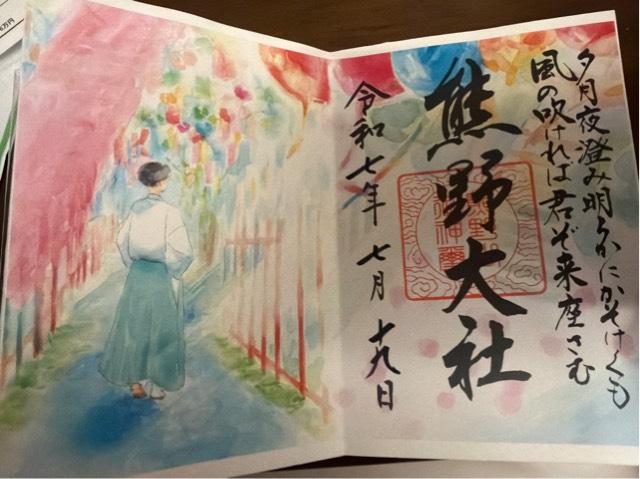 夕月夜澄み明らかにかそけくも
風の吹ければ君ぞ来座さむ
熊野大社
令和七年七月十九日
万円